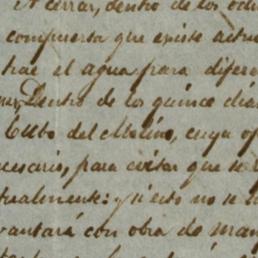 A cerrar, dentro de los och
compuerta que existe actu
hae el agua para difere
Dentro de los quince dias
Cubo del Molino, cuya op
cesario, para evitar que se
tualmente: y si esto no se
vantará con obra de mam